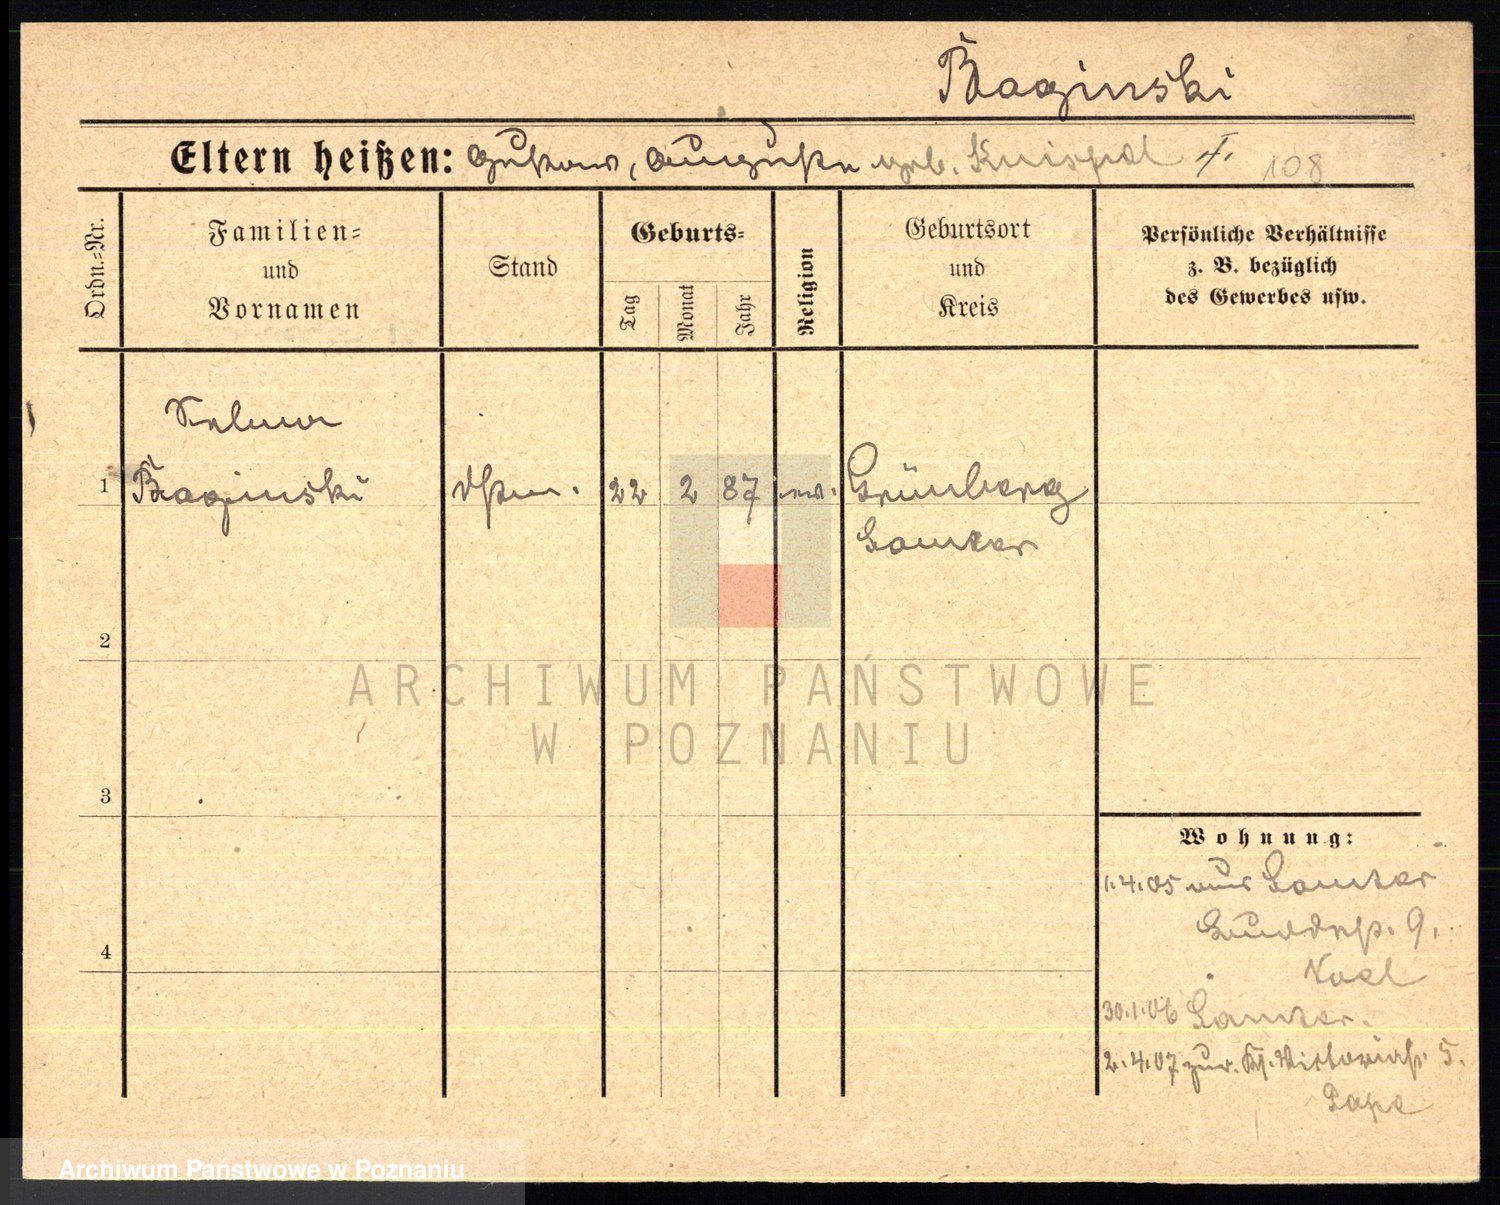 Baginski
Eltern heißen: Gustav, Auguste geb. Knispel I. 108
Ordn.-Nr.
Familien-
und
Vornamen
Stand
Geburts-
Tag
Monat
Jahr
Religion
Geburtsort
und
Kreis
Persönliche Verhältnisse
z. B. bezüglich
des Gewerbes usw.
Selma
1 Baginski 22 2 87 ev. Grünberg
Samter
2
ARCHIWUM PAŃSTWOWE
W POZNANIU
3
Wohnung:
1.4.05 aus Samter
9.
4
30.1.06 Samter.
2.4.07 zur. Victoriastr. 5.
Pape
Archiwum Państwowe w Poznaniu